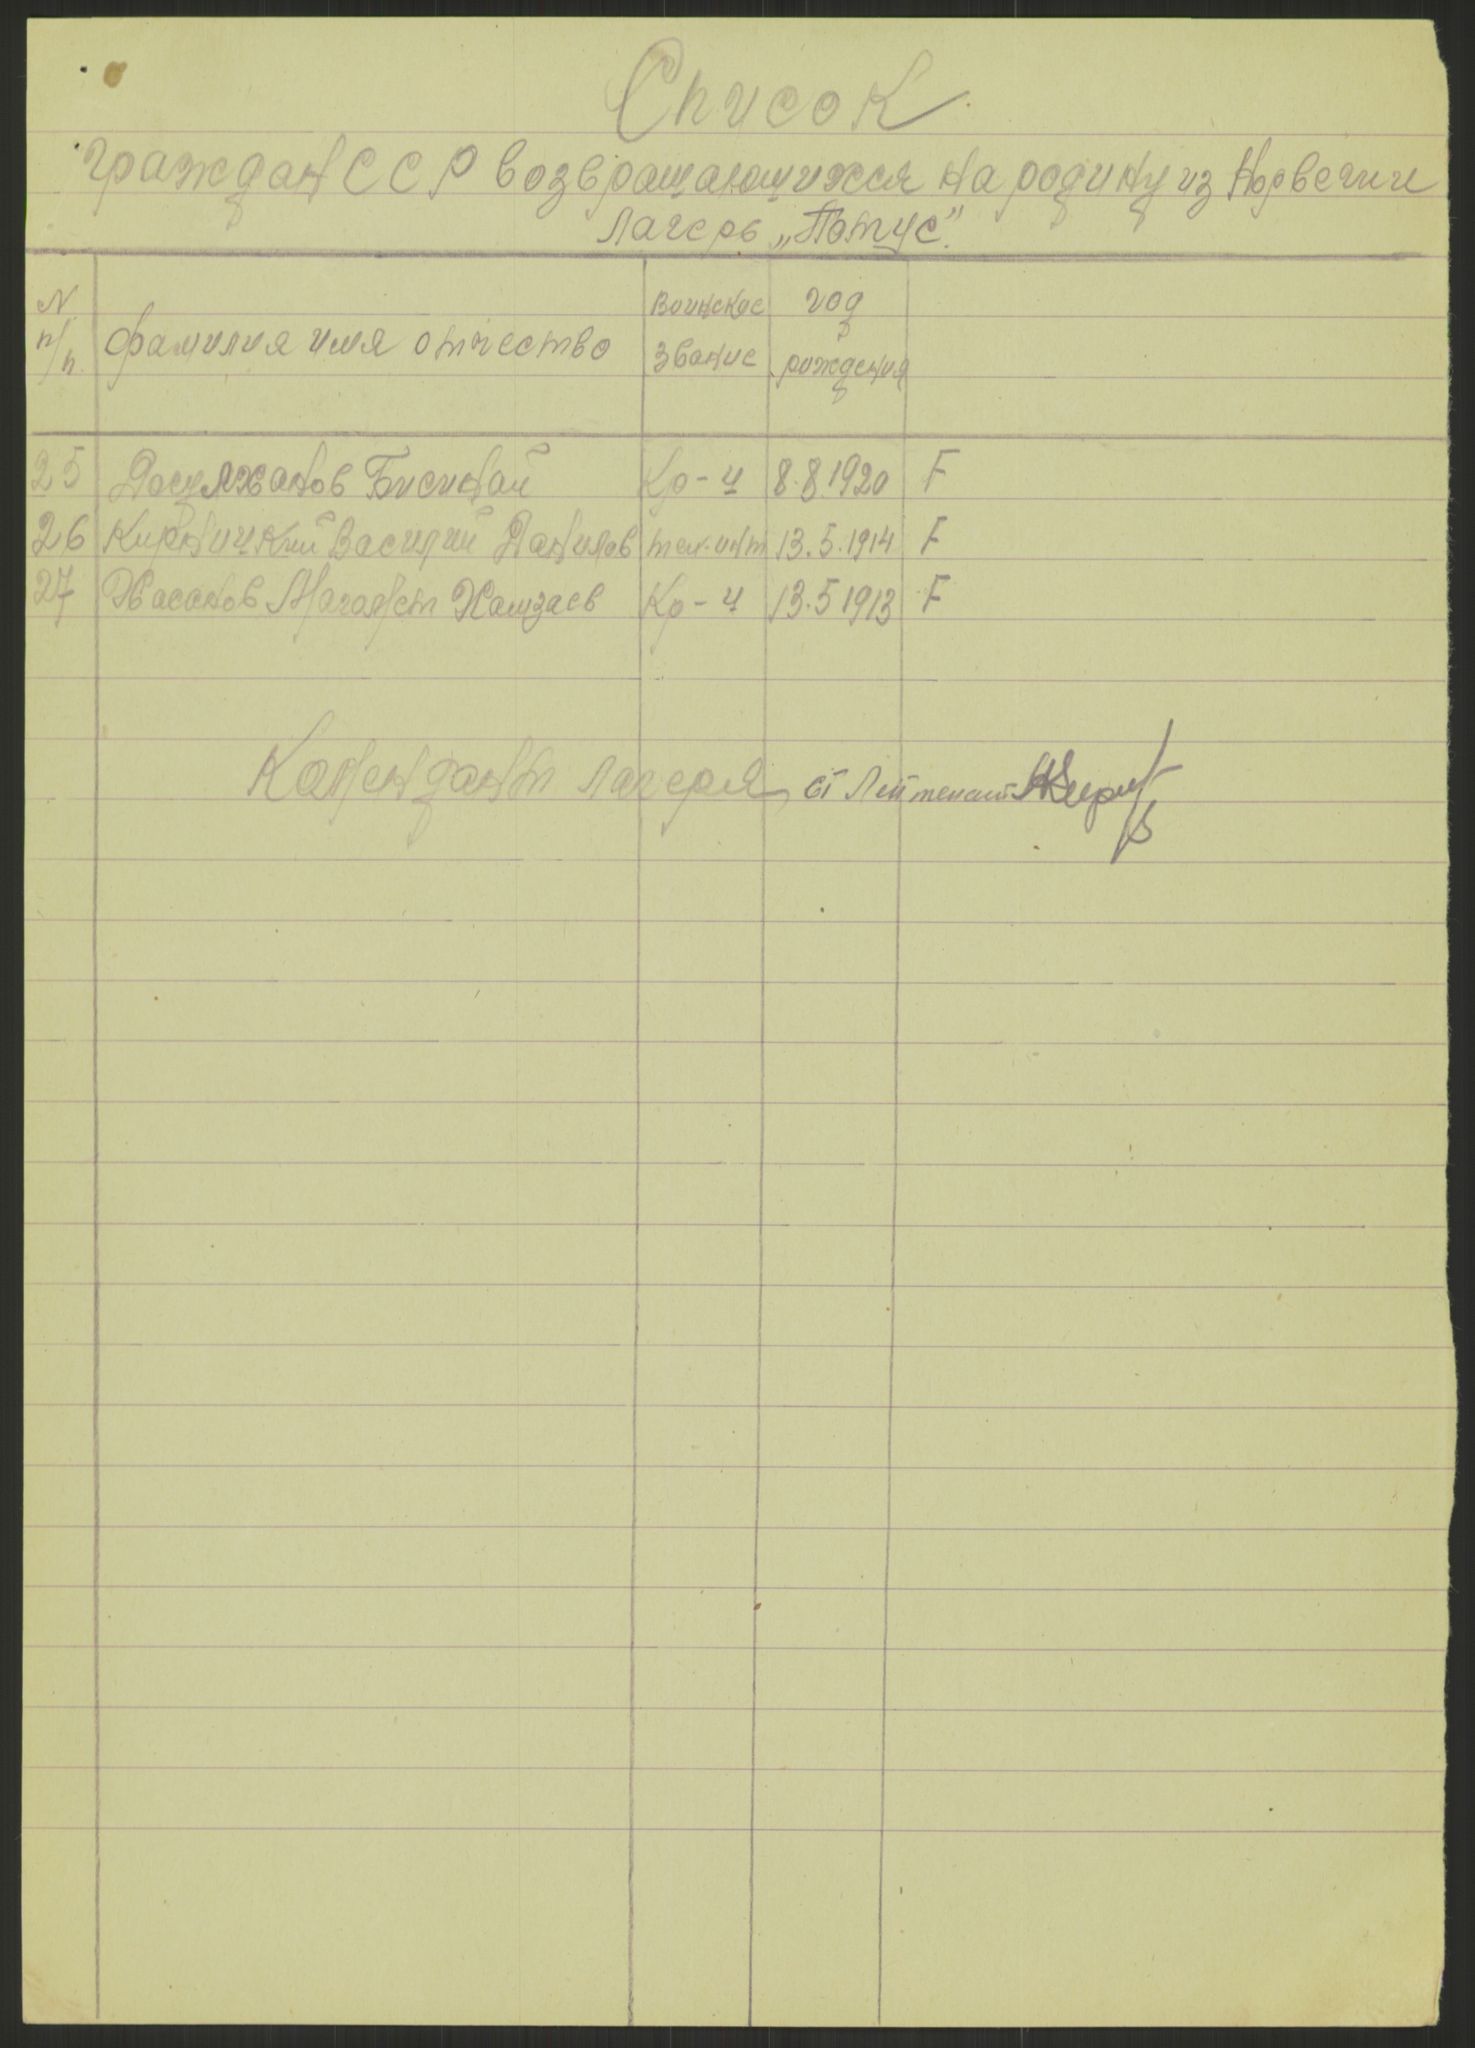 Список
граждан СССР возвращающихся на родину из Норвегии
лагерь „Потус".
N п/п фамилия имя отчество воинское звание год рождения
25 Досумжанов Бисинбай Кр-ц 8.8.1920 F
26 Кирницкий Василий Данилов тех.инт 13.5.1914 F
27 Хасанов Магомет Хамзаев Кр-ц 13.5 1913 F
Комендант лагеря, ст Лейтенант